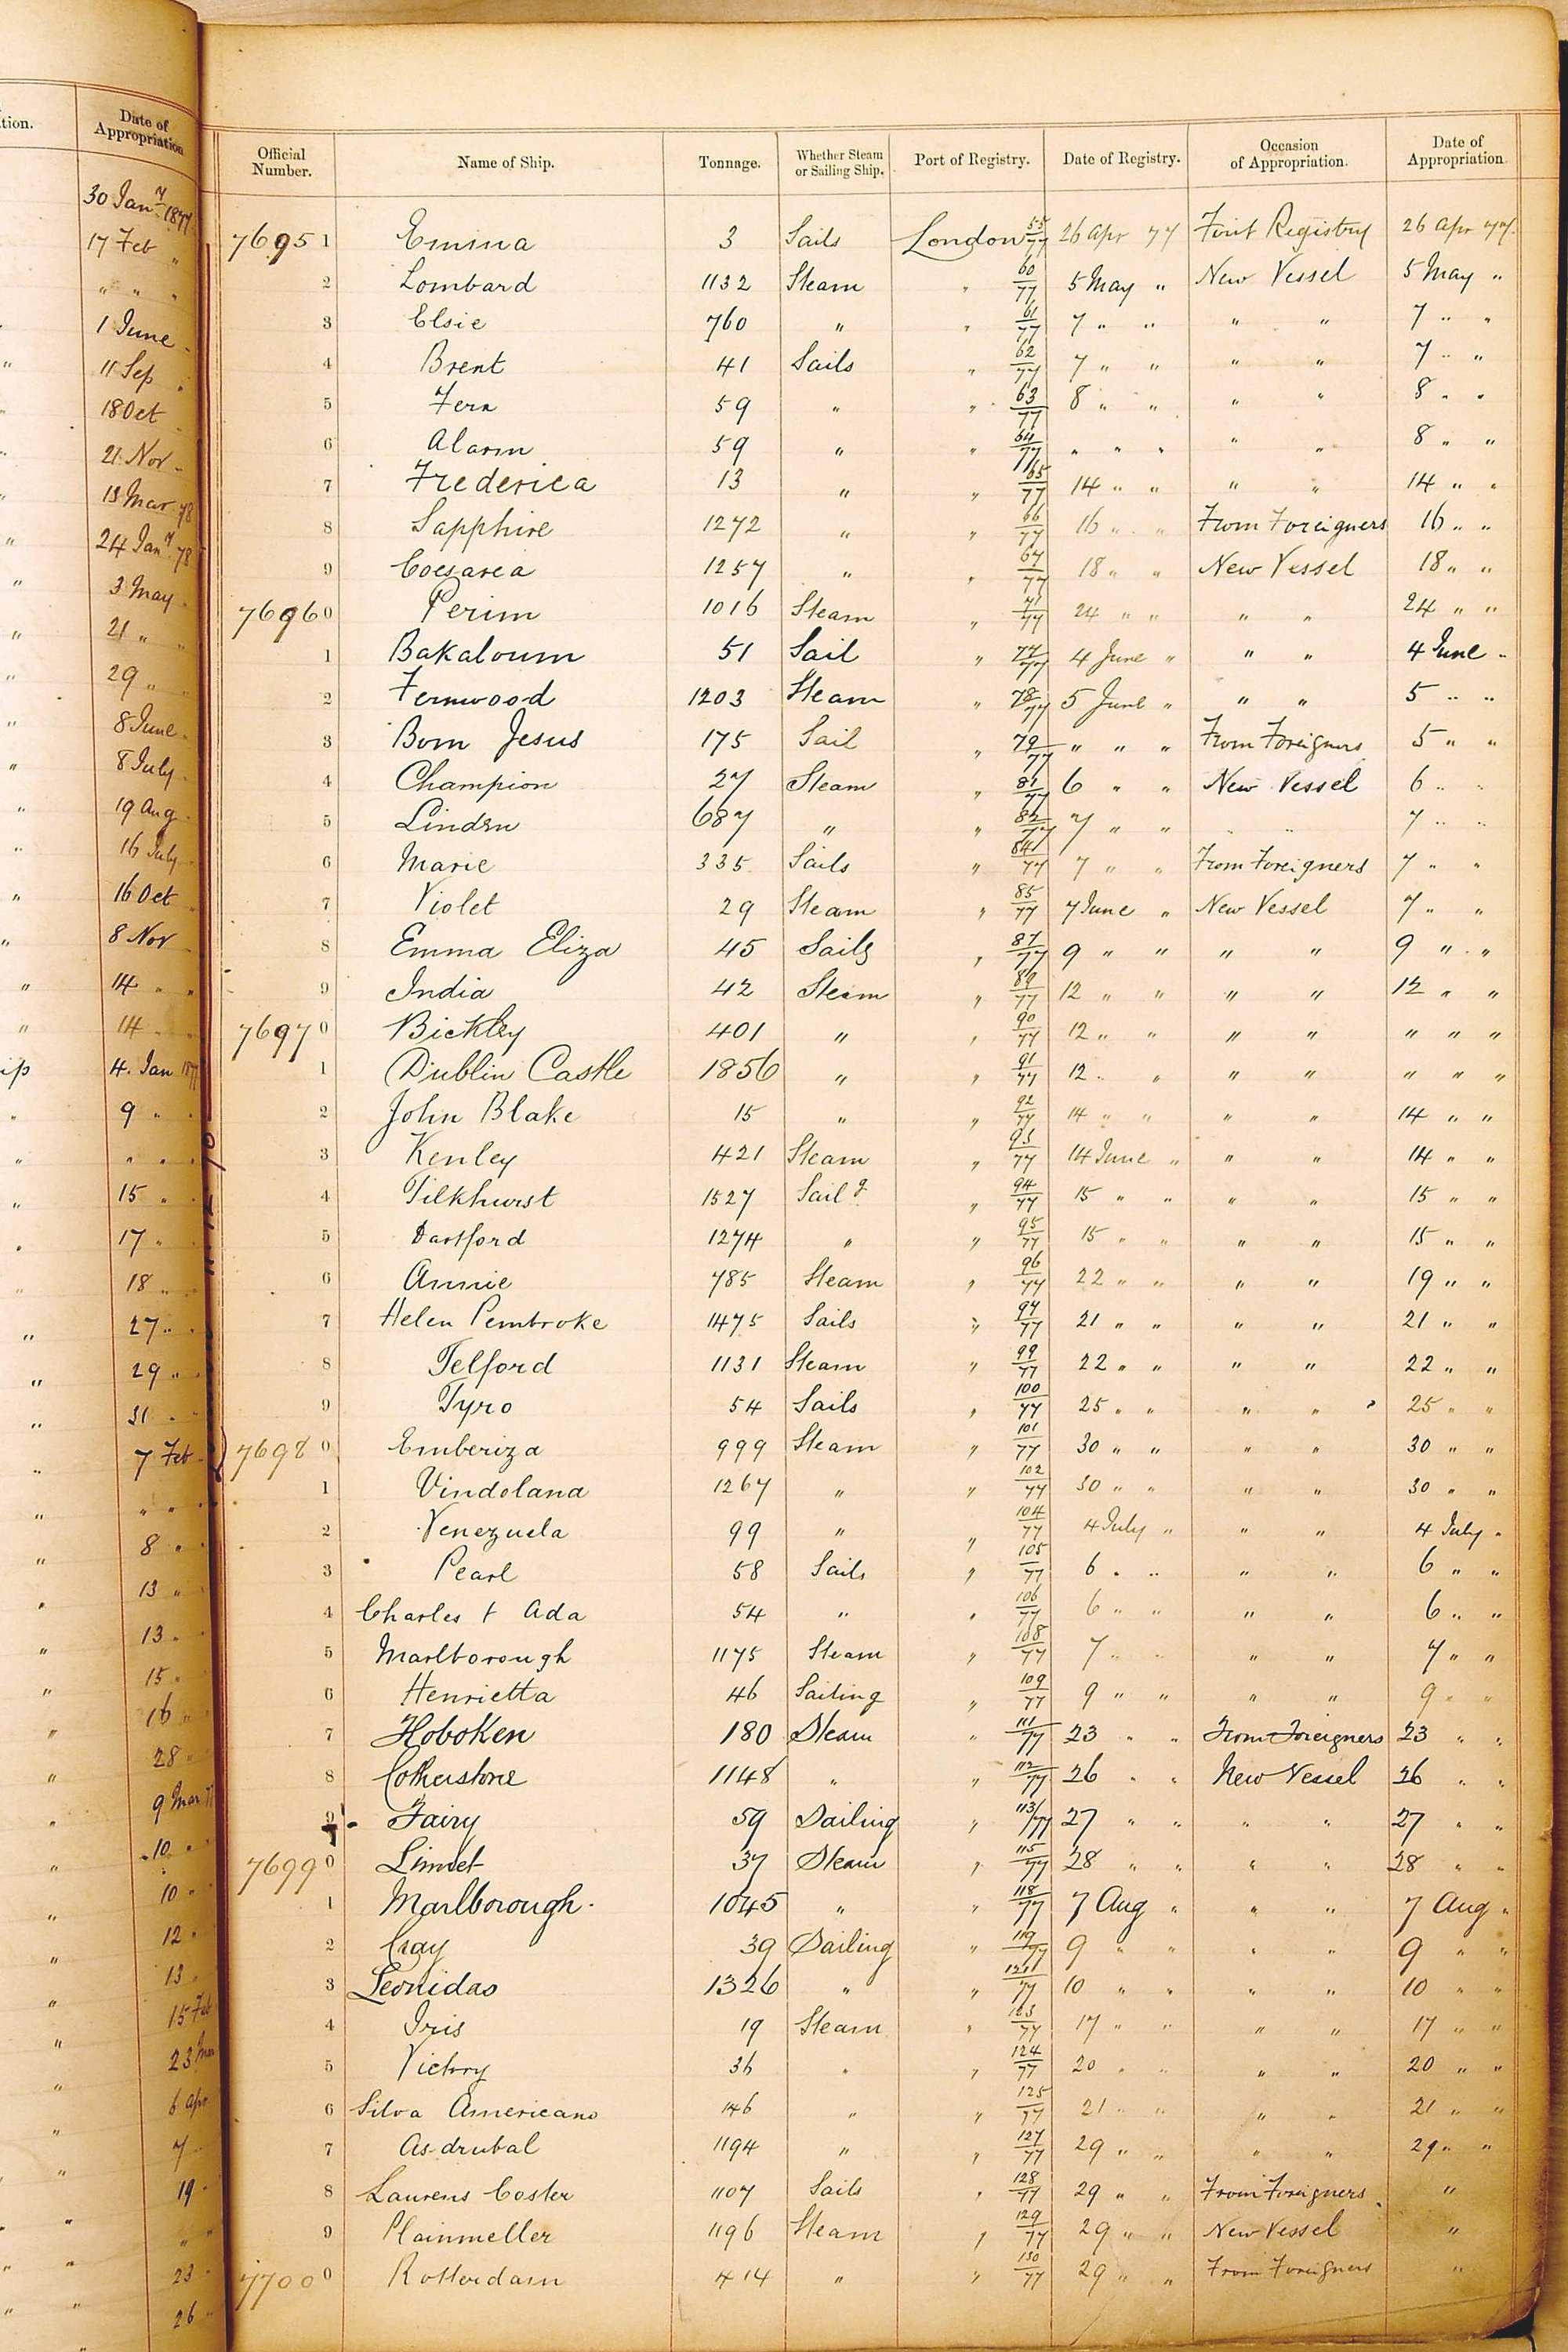 tion.
Date of
Appropriation
30 Jany 1877
17 Feb "
" " "
1 June "
" 11 Sep "
18 Oct
21 Nov "
13 Mar 78
" 24 Jany 78
" 3 May "
" 21 " "
" 29 " "
" 8 June "
" 8 July "
" 19 Aug "
" 16 July "
" 16 Oct "
" 8 Nov
" 14 " "
" 14 " "
ip 4 Jan 1877
" 9 " "
" " " "
" 15 " "
" 17 " "
" 18 " "
" 27 " "
" 29 " "
" 31 " "
" 7 Feb "
" " " "
" 8 " "
" 13 "
" 13 "
" 15 "
" 16 "
" 28 "
" 9 Mar 77
" 10 "
" 10 "
" 12 "
" 13 "
" 15 Feb
" 23 Mar
" 6 Apr
" 7 "
" 19 "
" " " "
" " 23 "
" " 26 "
Official Number. Name of Ship. Tonnage. Whether Steam or Sailing Ship. Port of Registry. Date of Registry. Occasion of Appropriation. Date of Appropriation
76951 Emma 3 Sails London 55/77 26 Apr 77 First Registry 26 Apr 77.
2 Lombard 1132 Steam " 60/77 5 May " New Vessel 5 May "
3 Elsie 760 " " 61/77 7 " " " " 7 " "
4 Brent 41 Sails " 62/77 7 " " " " 7 " "
5 Fern 59 " " 63/77 8 " " " " 8 " "
6 Alarm 59 " " 64/77 " " " " " 8 " "
7 Frederica 13 " " 65/77 14 " " " " 14 " "
8 Sapphire 1272 " " 66/77 16 " " From Foreigners 16 " "
9 Coesarea 1257 " " 67/77 18 " " New Vessel 18 " "
76960 Perim 1016 Steam " 71/77 24 " " " " 24 " "
1 Bakaloum 51 Sail " 77/77 4 June " " " 4 June "
2 Fernwood 1203 Steam " 78/77 5 June " " " 5 " "
3 Bom Jesus 175 Sail " 79/77 " " " From Foreigners 5 " "
4 Champion 27 Steam " 81/77 6 " " New Vessel 6 " "
5 Linden 687 " " 82/77 7 " " " " 7 " "
6 Marie 335 Sails " 84/77 7 " " From Foreigners 7 " "
7 Violet 29 Steam " 85/77 7 June " New Vessel 7 " "
8 Emma Eliza 45 Sails " 87/77 9 " " " " 9 " "
9 India 42 Steam " 89/77 12 " " " " 12 " "
76970 Bickley 401 " " 90/77 12 " " " " " " "
1 Dublin Castle 1856 " " 91/77 12 " " " " " " "
2 John Blake 15 " " 92/77 14 " " " " 14 " "
3 Kenley 421 Steam " 93/77 14 June " " " 14 " "
4 Tilkhurst 1527 Sailg " 94/77 15 " " " " 15 " "
5 Dartford 1274 " " 95/77 15 " " " " 15 " "
6 Annie 785 Steam " 96/77 22 " " " " 19 " "
7 Helen Pembroke 1475 Sails " 97/77 21 " " " " 21 " "
8 Telford 1131 Steam " 99/77 22 " " " " 22 " "
9 Tyro 54 Sails " 100/77 25 " " " " 25 " "
76980 Emberiza 999 Steam " 101/77 30 " " " " 30 " "
1 Vindolana 1267 " " 102/77 30 " " " " 30 " "
2 Venezuela 99 " " 104/77 4 July " " " 4 July "
3 Pearl 58 Sails " 105/77 6 " " " " 6 " "
4 Charles & Ada 54 " " 106/77 6 " " " " 6 " "
5 Marlborough 1175 Steam " 108/77 7 " " " " 7 " "
6 Henrietta 46 Sailing " 109/77 9 " " " " 9 " "
7 Hoboken 180 Steam " 111/77 23 " " From Foreigners 23 " "
8 Cotherstone 1148 " " 112/77 26 " " New Vessel 26 " "
9 Fairy 59 Sailing " 113/77 27 " " " " 27 " "
76990 Linnet 37 Steam " 115/77 28 " " " " 28 " "
1 Marlborough 1045 " " 118/77 7 Aug " " " 7 Aug "
2 Cray 39 Sailing " 119/77 9 " " " " 9 " "
3 Leonidas 1326 " " 121/77 10 " " " " 10 " "
4 Iris 19 Steam " 77 17 " " " " 17 " "
5 Victory 36 " " 124/77 20 " " " " 20 " "
6 Silva Americano 146 " " 125/77 21 " " " " 21 " "
7 Asdrubal 1194 " " 127/77 29 " " " " 29 " "
8 Laurens Coster 1107 Sails " 128/77 29 " " From Foreigners "
9 Plainmeller 1196 Steam " 129/77 29 " " New Vessel "
77000 Rotterdam 414 " " 130/77 29 " " From Foreigners "